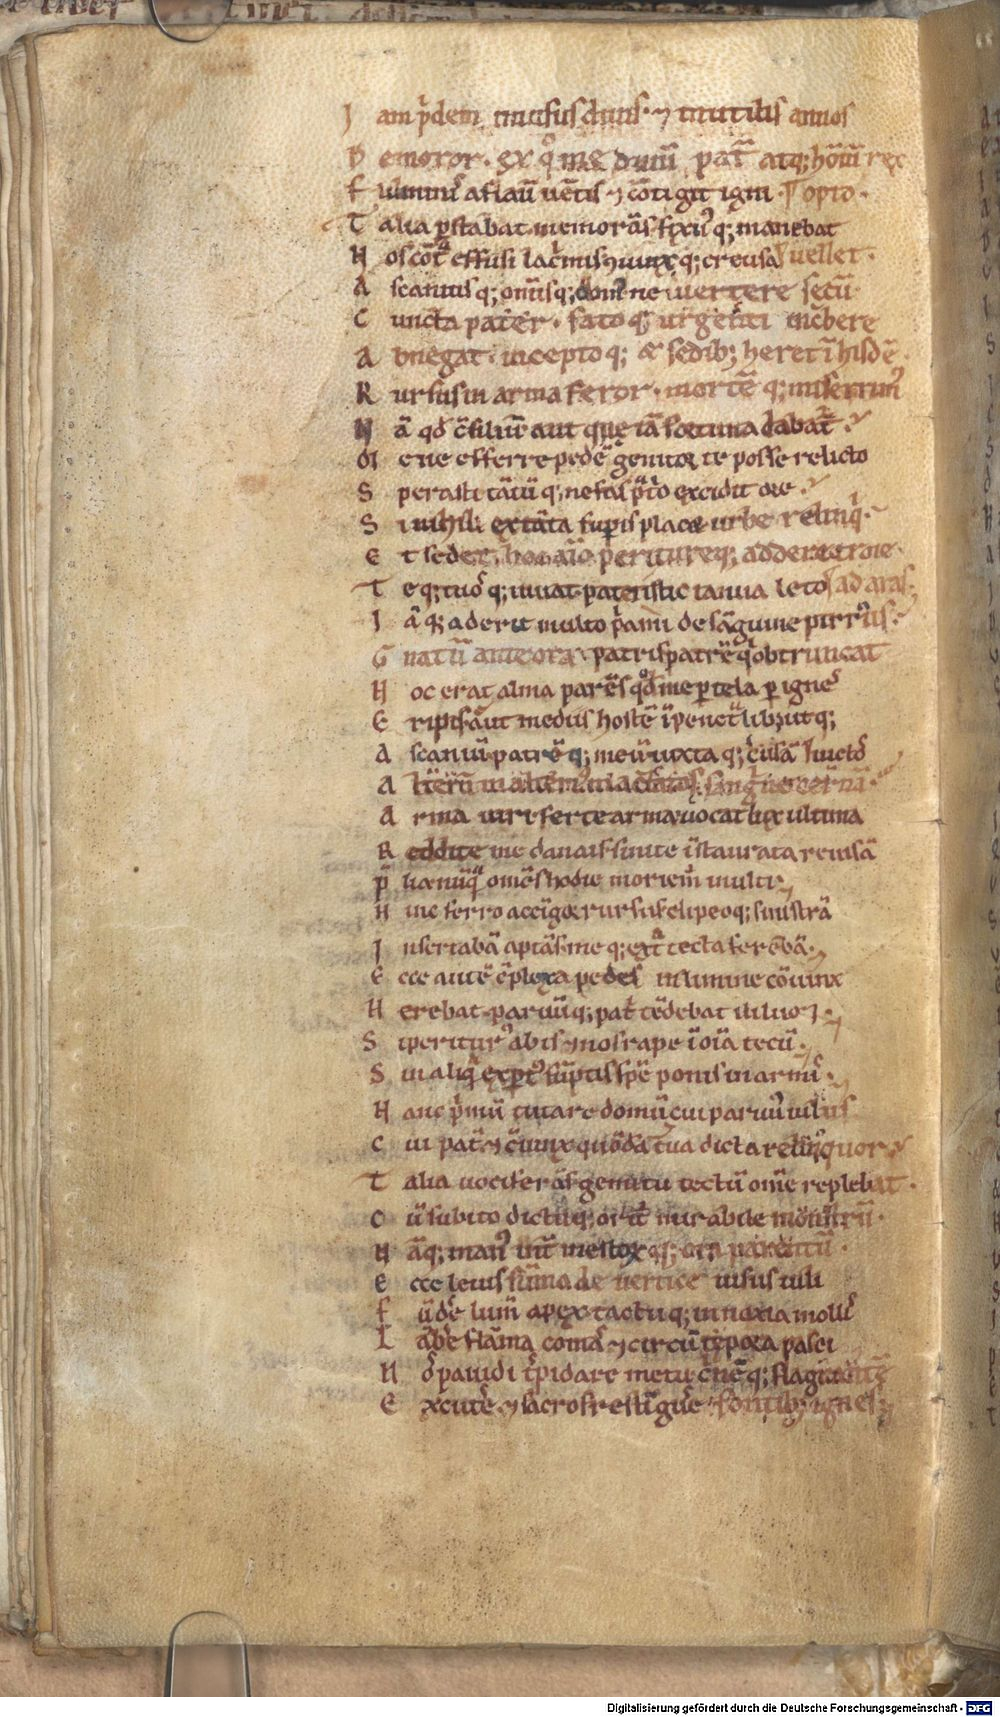 J am pͥdem inuisus diuis · ⁊ inutilis annos
D emoror · ex qͦ me diuū patͬ atq; hoīū rex
F ulminıͥs aflauͭ uētis ⁊ cōtigit igni ·
T alia pstabat memorās fixusq; manebat
N os cōtͣ effusi lacͥmis ⁊iunx q; creusa
A scanius q; omīsq; domꝰ ne uertere secū
C uncta pater · fatoq; urgenti incūbere uellet ·
A bnegat · inceptoq; & sedib; heret ī hisdē ·
R ursus in arma feror · mortē q; miserrimꝰ opto ·
N ā qd cōsiliū aut que iā fortuna dabatͬ ·
M ene efferre pedē genitor te posse relicto
S perasti tātū q; nefas pͣtͦo excidit ore ·
S i nihil ex tāta supis placet urbe relinqͥ ·
E t sedet hoc aīo periture q; addere troie ·
T eq; tuosq; iuuat · patet isti ianua leto
J ā q; aderit multo pͥami de sāguine pirrꝰ
G natū ante ora patris patrē qͥ obtruncat ad aras ·
H oc erat alma parēs qd me p tela p ignes
E ripis · ut mediis hostē ī penetͣlib; utq;
A scaniū patrē q; meū iuxta q; cͬusā
A lterū in alterius mactatos sanguine cernā ·
A rma uiri ferte arma uocat lux ultima uictos
R eddite me danais sinite īstaurata reuisā
P̄ lia nūqͣ omēs hodie moriemͬ inulti
H inc ferro accīgor rursus clipeoq; sinistrā
J nsertabā aptās · me q; extͣ tecta ferebā ·
E cce autē cōplexa pedes in limine cōiunx
H erebat · paruū q; patͥ tēdebat iuliū
S i periturꝰ abis · ⁊ nos rape ī oīa tecū ·
S in aliqͣ expertꝰ sūptis spē ponis in armis ·
H anc pͥmū tutare domū cui paruus iulus
C ui patͬ ⁊ cōiunx quōdā tua dicta relinquor
T alia uociferās gemitu tectū omē replebat ·
C ū subito dictuq; oritͬ mirabile monstrū ·
N āq; manꝰ intͬ mestorq; ora parētū ·
E cce leuis sūmo de uertice uisus iuli
F ūdͬe lumͭ apex · tactuq; innoxia mollıͥs
L ābͬe flāma comas ⁊ circū tēpora pasci
N os pauidi tͬpidare metu cͥnē q; flagrantē
E xcutͬe ⁊ sacros restīguͬe fontib; ignes ;
Digitalisierung gefördert durch die Deutsche Forschungsgemeinschaft · DFG